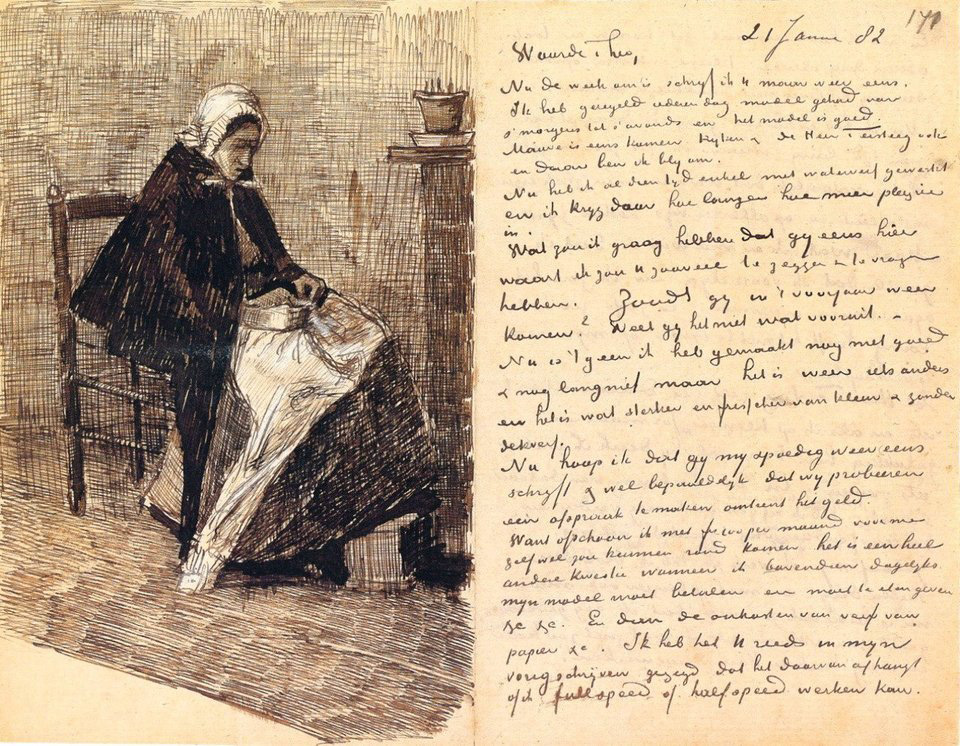 171
21 Januari 82
Waarde Theo,
Nu de week om is schrijf ik U maar weer eens.
Ik heb geregeld iederen dag model gehad van
s'morgens tot s'avonds en het model is goed.
Mauve is eens komen kijken & de Heer Tersteeg ook
en daar ben ik bly om.
Nu heb ik al dien tyd enkel met waterverf gewerkt
en ik kryg daar hoe langer hoe meer pleyzier
in.
Wat zou ik graag hebben dat gy eens hier
waart ik zou U zooveel te zeggen & te vragen
hebben. Zoudt gy in 't voorjaar weer
komen? Weet gy het niet wat vooruit. –
Nu is 't geen ik heb gemaakt nog niet goed
& nog lang niet maar het is weer iets anders
en het is wat sterker en frisscher van kleur & zonder
dekverf.
Nu hoop ik dat gy my spoedig weer eens
schryft & wel bepaaldelyk dat wy probeeren
een afspraak te maken omtrent het geld.
Want ofschoon ik met fr 100 per maand voor me
zelf wel zou kunnen rond komen het is een heel
andere kwestie wanneer ik bovendien dagelyks
myn model moet betalen en moet te eten geven
&c &c. En dan de onkosten van verf van
papier &c. Ik heb het U reeds in myn
vorig schryven gezegd dat het daarvan afhangt
of ik full speed of half speed werken kan.